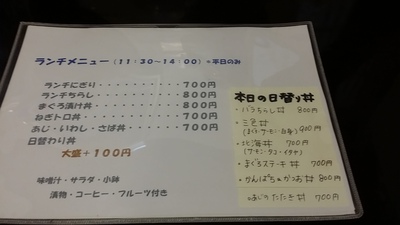 ランチメニュー (11:30~14:00) *平日のみ
ランチにぎり・・・・・・・・・700円
ランチちらし・・・・・・・・・800円
まぐろ漬け丼・・・・・・・・・800円
ねぎトロ丼・・・・・・・・・・700円
あじ・いわし・さば丼・・・・・700円
日替わり丼
大盛+100円
味噌汁・サラダ・小鉢
漬物・コーヒー・フルーツ付き
本日の日替り丼
・バラちらし丼 800円
・三色丼
(まぐろ・サーモン・白身) 900円
・北海丼 700円
(サーモン・タコ・イクラ)
・まぐろステーキ丼 700円
・かんぱち&かつお丼 800円
・あじのたたき丼 700円